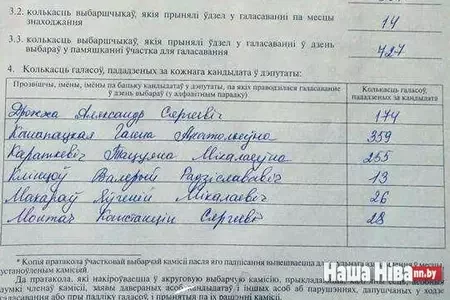 3.2. колькасць выбаршчыкаў, якія прынялі ўдзел у галасаванні па месцы
знаходжання
14
3.3. колькасць выбаршчыкаў, якія прынялі ўдзел у галасаванні ў дзень
выбараў у памяшканні ўчастка для галасавання
727
4. Колькасць галасоў, пададзеных за кожнага кандыдата ў дэпутаты:
Прозвішчы, імёны, імёны па бацьку кандыдатаў у дэпутаты, па якіх праводзілася галасаванне
ў дзень выбараў (у алфавітным парадку)
Колькасць галасоў,
пададзеных за кандыдата
Дрожжа Аляксандр Сяргеевіч 174
Канапацкая Ганна Анатольеўна 359
Караткевіч Таццяна Мікалаеўна 255
Клімцоў Валерый Радзіслававіч 13
Макараў Яўгеній Мікалаевіч 26
Монтач Канстанцін Сяргеевіч 28
* Копія пратакола ўчастковай выбарчай камісіі пасля яго падпісання вывешваецца для
устаноўленым камісіяй.
Да пратакола, які накіроўваецца ў акруговую выбарчую камісію,
думкі членаў камісіі, заявы давераных асоб кандыдатаў і іншых асоб аб парушэннях, дапушчаных у ходзе
галасавання або пры падліку галасоў, і прынятыя па іх рашэнні камісіі.
Наша Ніва nn.by